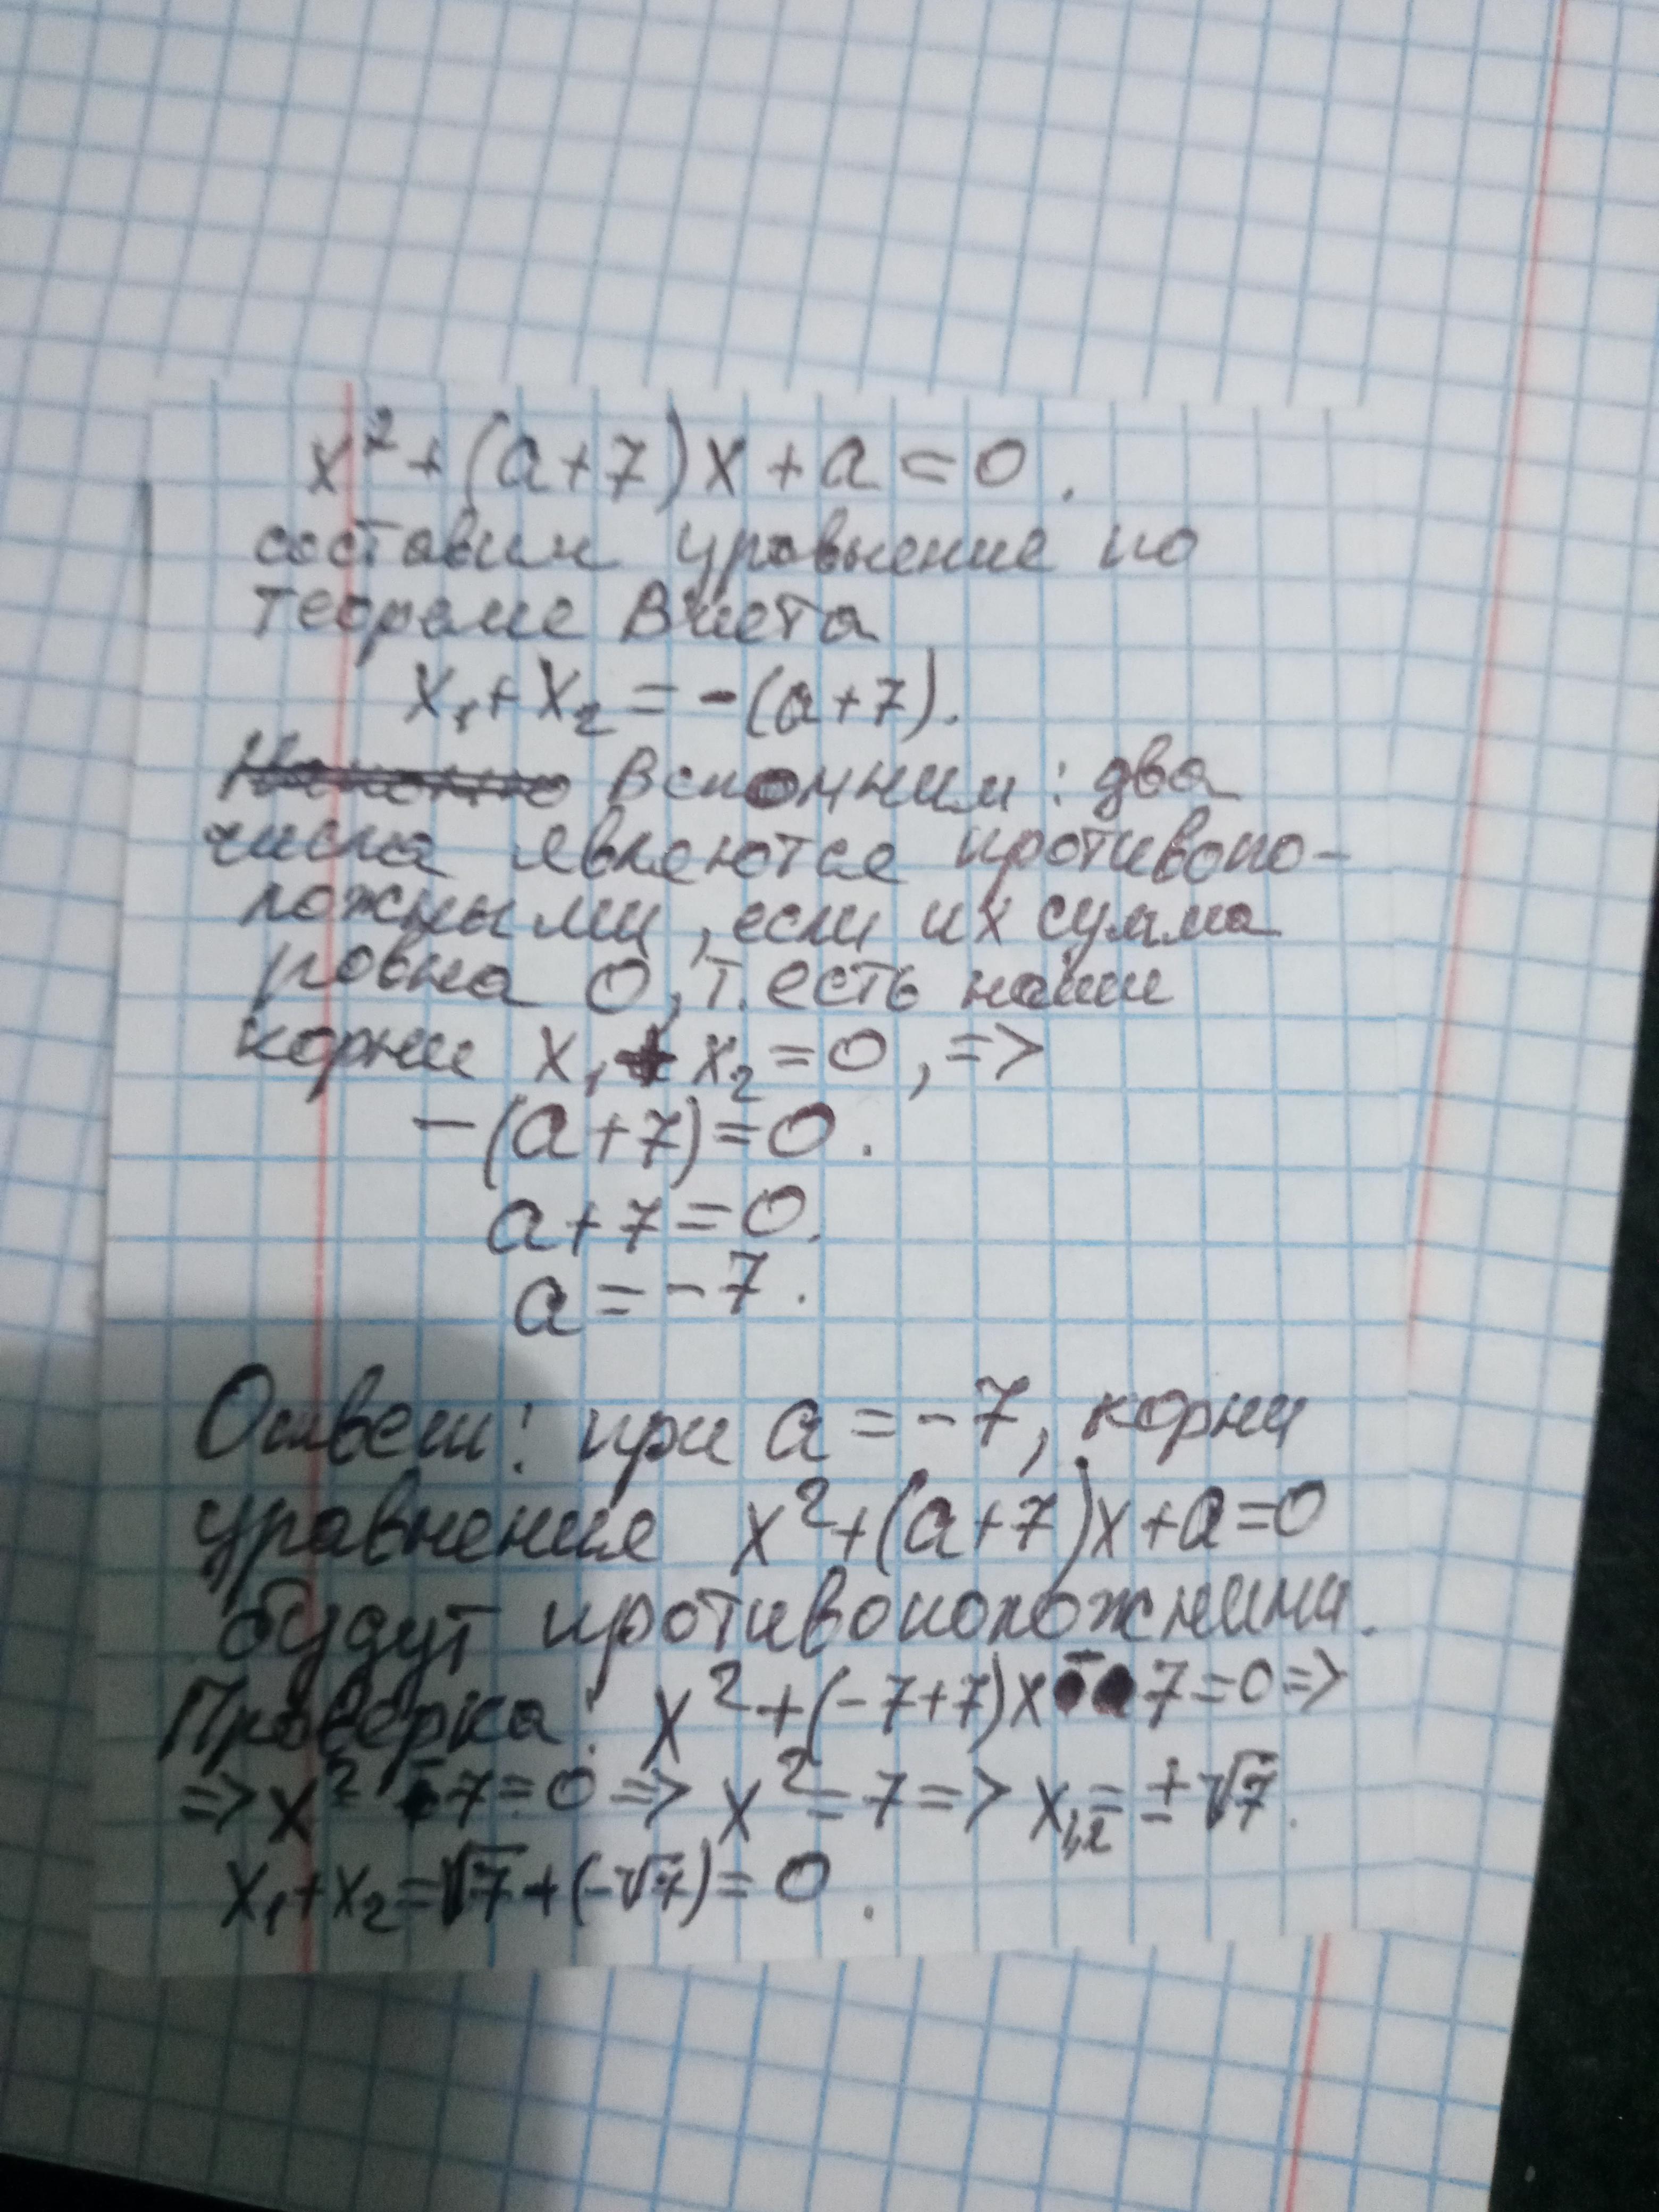 x² + (a+7)x + a = 0.
составим уравнение по
теореме Виета
x₁ + x₂ = -(a+7).
Вспомним: два
числа являются противопо-
ложными, если их сумма
равна 0, т. есть наши
корни x₁ + x₂ = 0, =>
-(a+7)=0.
a+7=0.
a=-7.
Ответ: при a=-7, корни
уравнения x²+(a+7)x+a=0
будут противоположными.
Проверка: x²+(-7+7)x-7=0=>
=> x²-7=0=> x²=7=> x₁,₂=±√7.
x₁+x₂=√7+(-√7)=0.